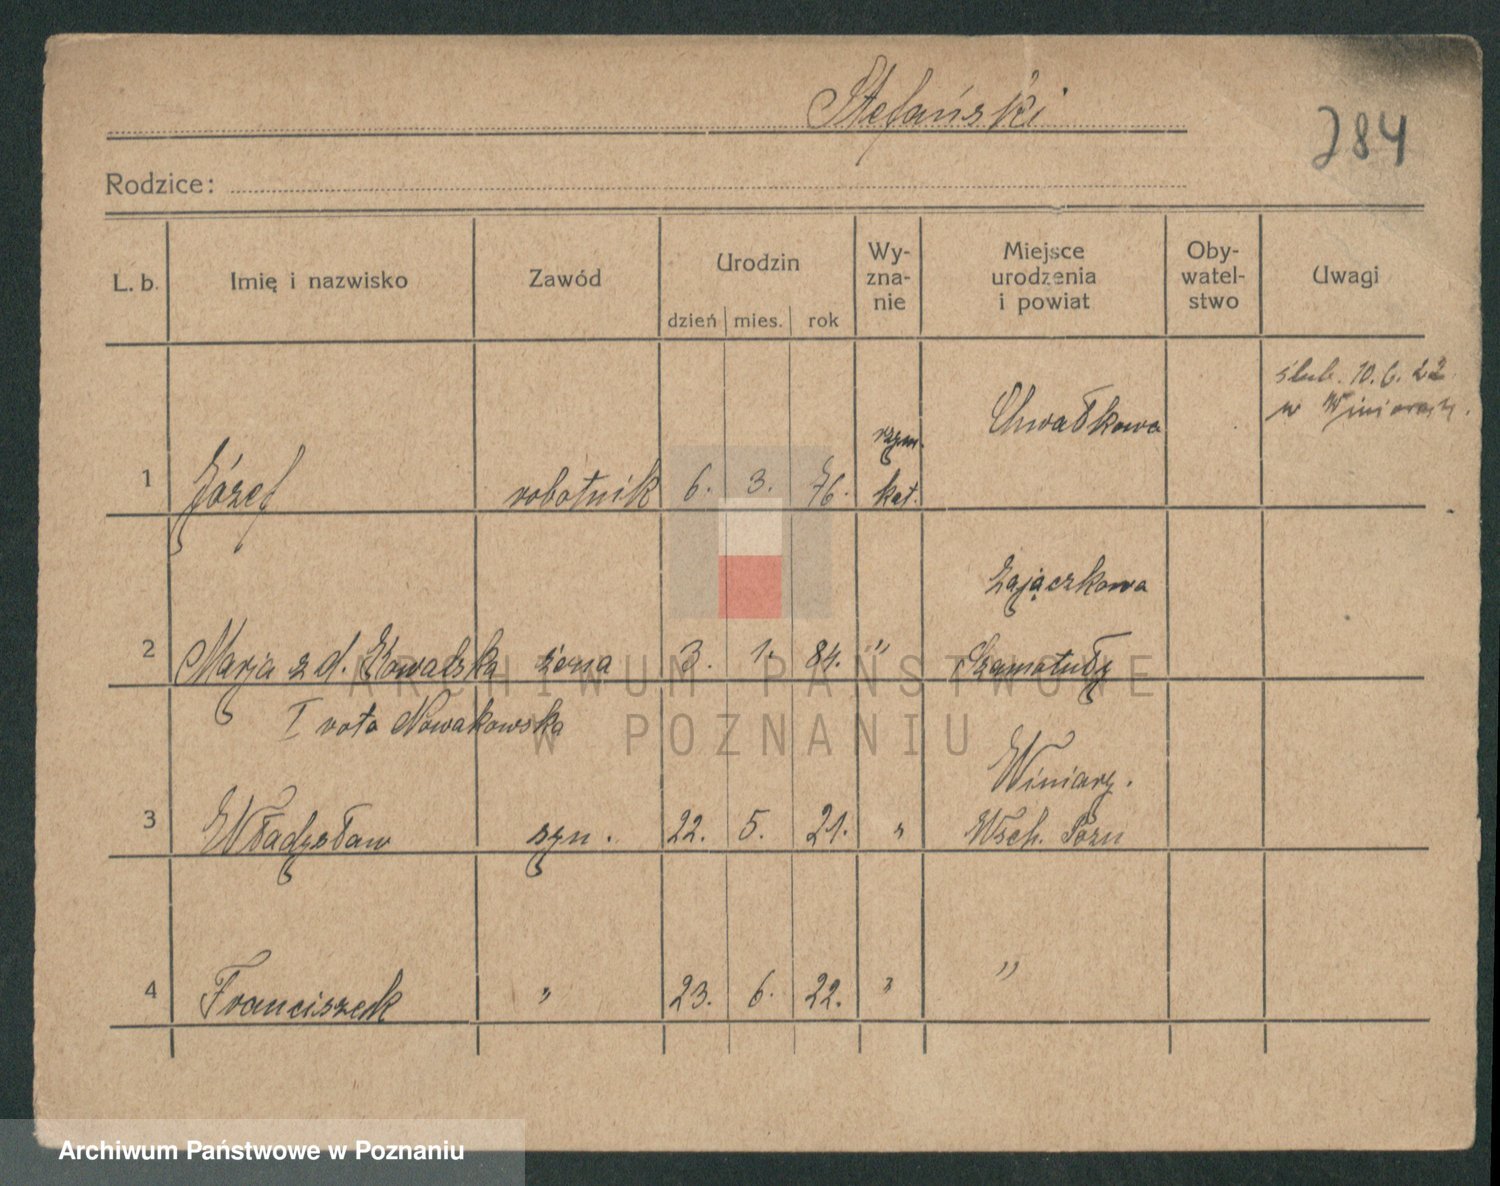 Stefański
284
Rodzice:
L. b.
Imię i nazwisko
Zawód
Urodzin
dzień mies. rok
Wy-
zna-
nie
Miejsce
urodzenia
i powiat
Oby-
watel-
stwo
Uwagi
1 Józef robotnik 6. 3. 76. rzym. kat. Chwałkowo
ślub. 10. 6. 22
w Winiarach.
2 Marja z d. Kowalska żona 3. 1. 84. " Zajączkowo
Szamotuły
I voto Nowakowska
3 Władysław syn. 22. 5. 21. " Winiary.
Wsch. Pozn
4 Franciszek " 23. 6. 22. " "
ARCHIWUM PAŃSTWOWE
W POZNANIU
Archiwum Państwowe w Poznaniu